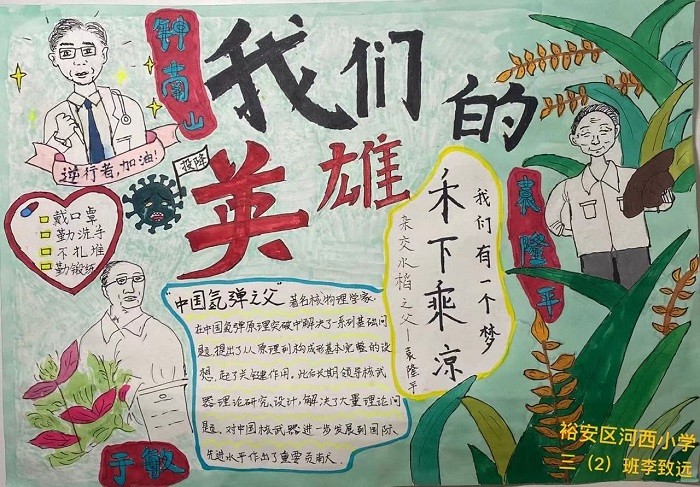 我们的
英雄
钟南山
逆行者,加油!
投降
戴口罩
勤洗手
不扎堆
勤锻炼
袁隆平
我们有一个梦
禾下乘凉
杂交水稻之父—袁隆平
"中国氢弹之父"著名核物理学家
在中国氢弹原理突破中解决了一系列基础问
题,提出了从原理到构成形基本完整的设
想,起了关键作用。此后长期领导核武
器理论研究、设计,解决了大量理论问
题,对中国核武器进一步发展到国际
先进水平作出了重要贡献人.
于敏
裕安区河西小学
三(2)班李致远